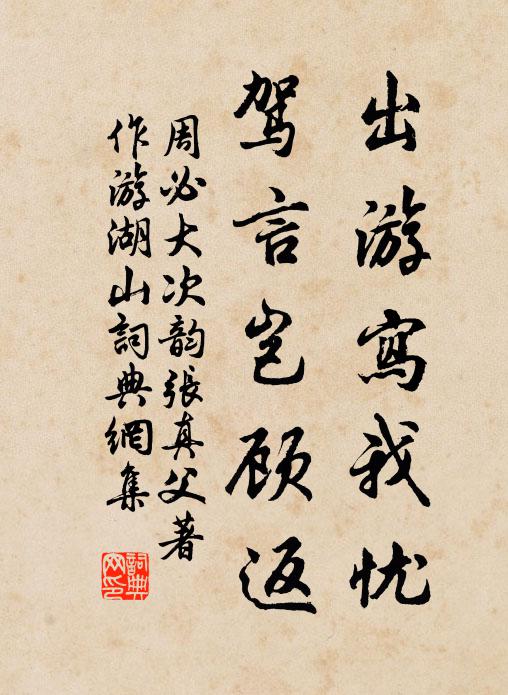 出游寫我忧
驾言岂顾返
周必大次韵張真父著
作游湖山詞典網集
詞典
网印